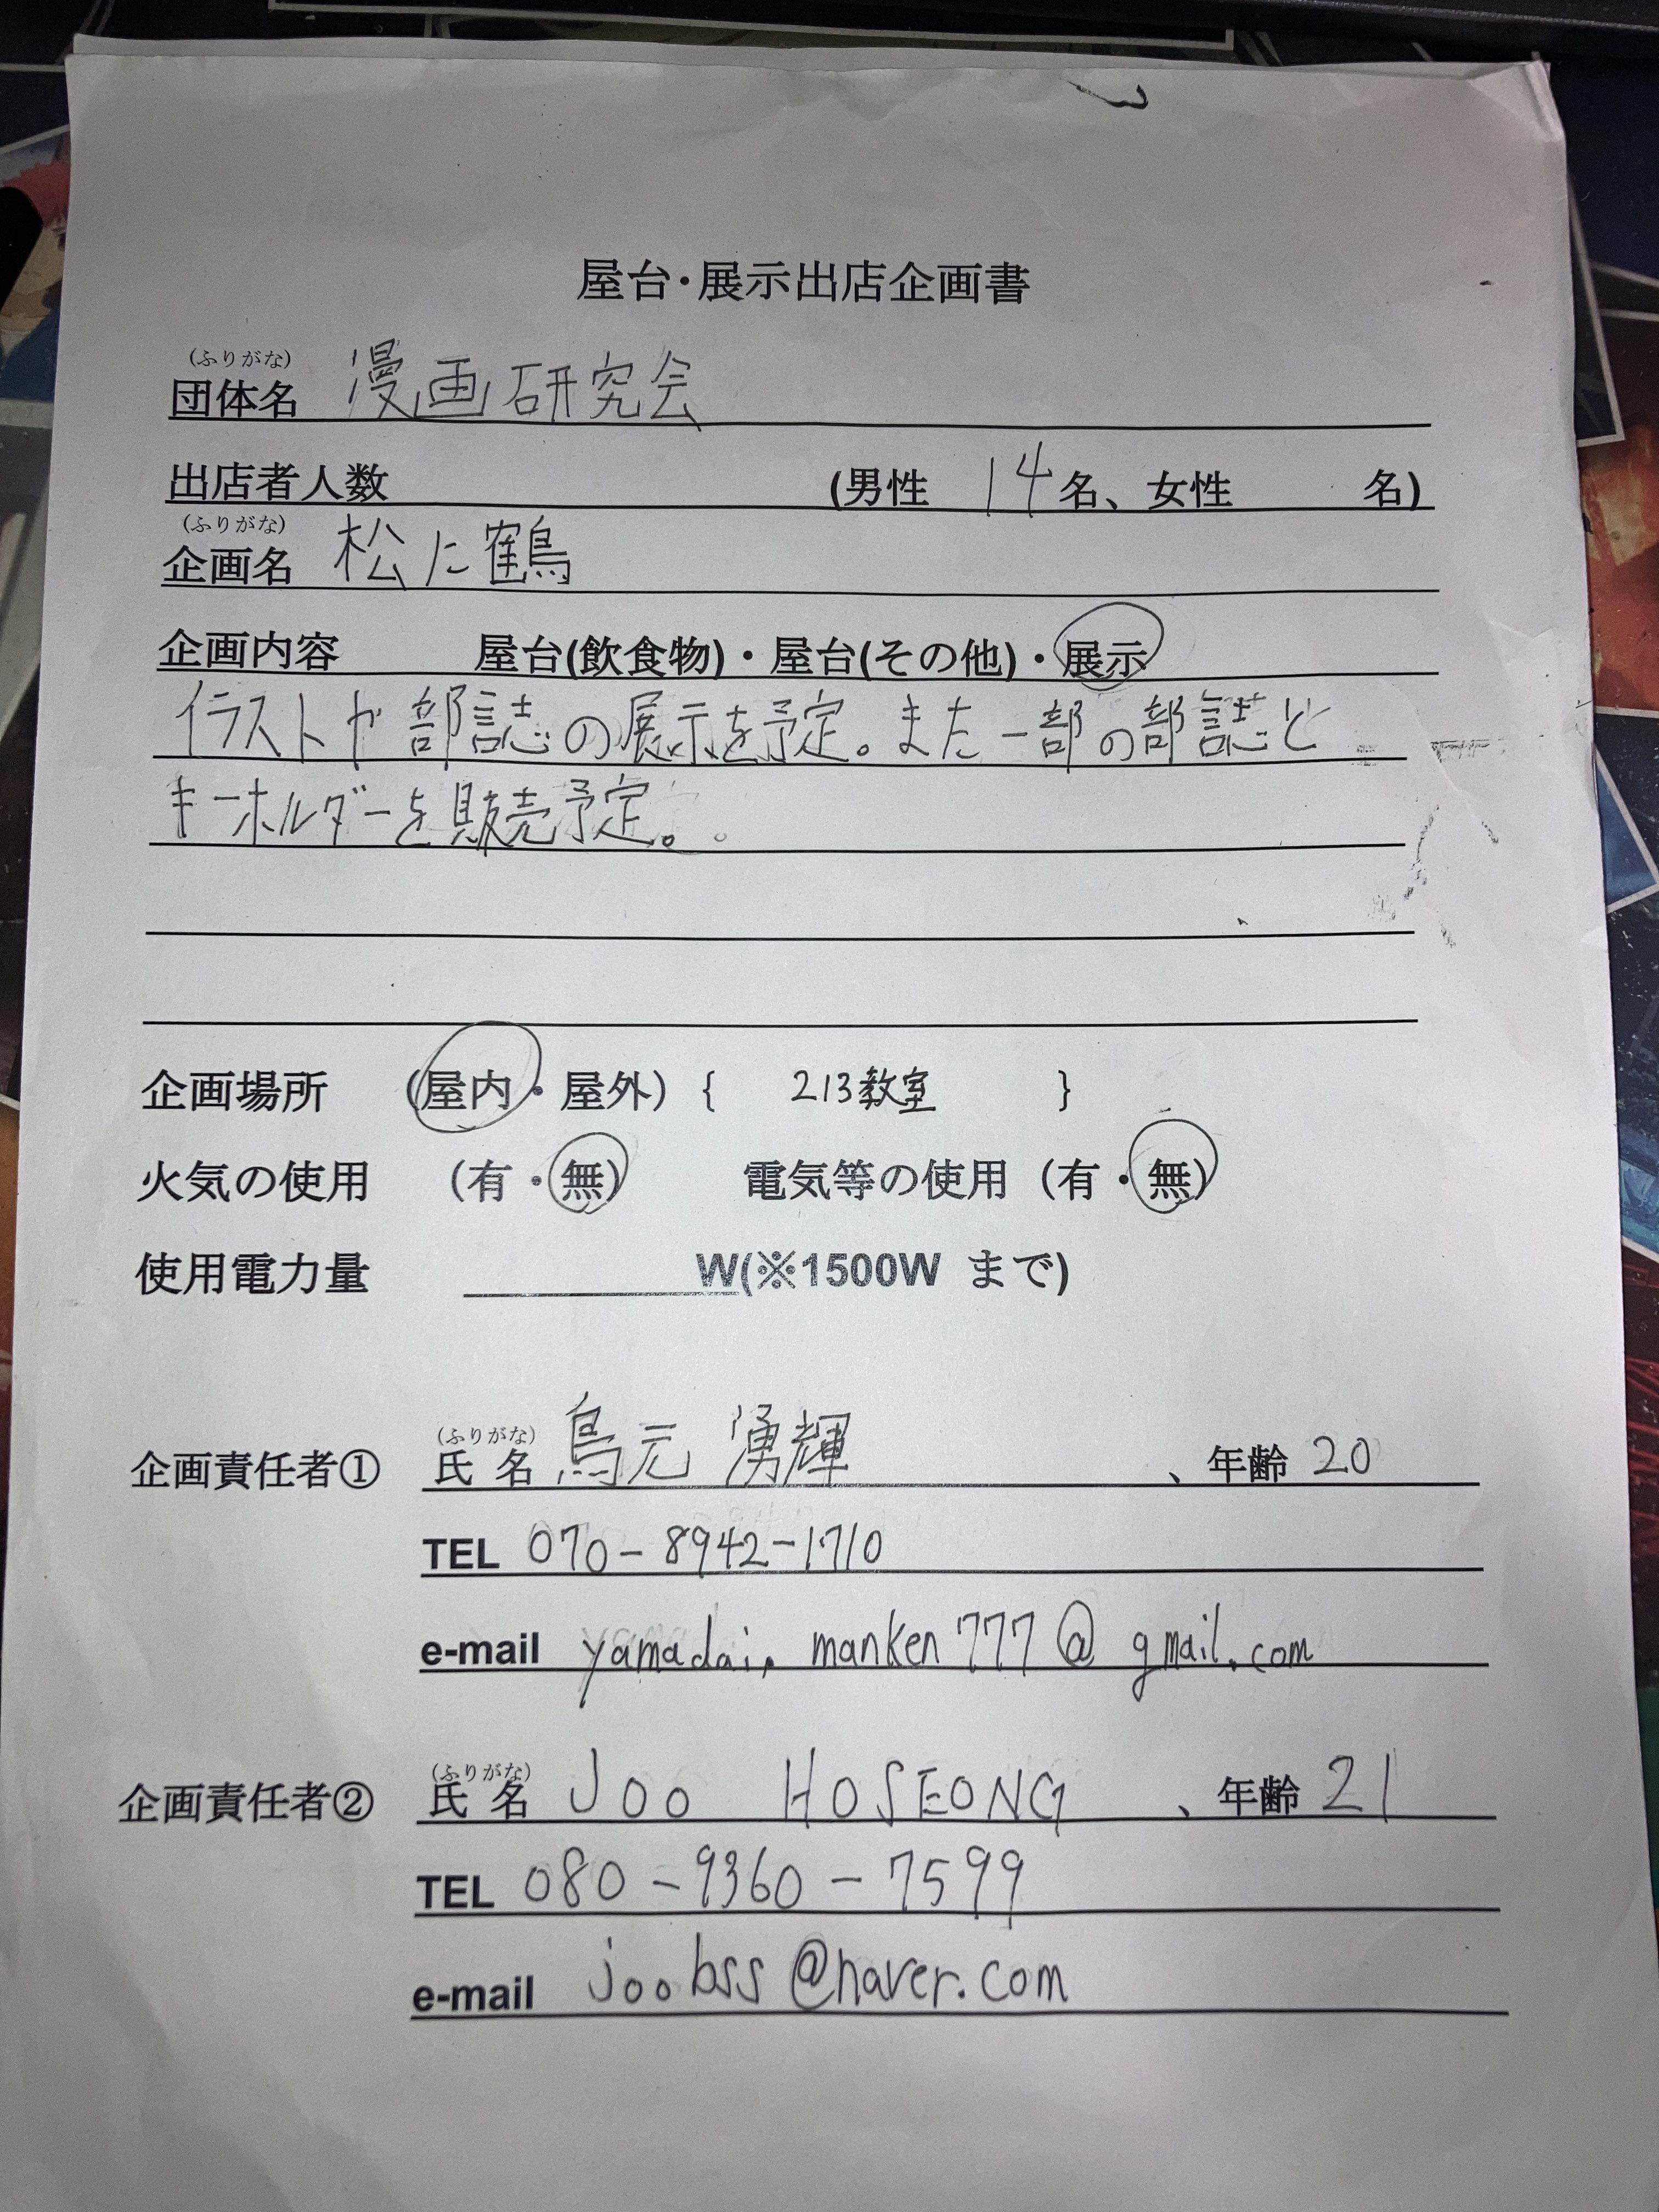 屋台・展示出店企画書
(ふりがな)
団体名 漫画研究会
出店者人数 (男性 14名、女性 名)
(ふりがな)
企画名 松に鶴
企画内容 屋台(飲食物)・屋台(その他)・展示
イラストや部誌の展示を予定。また一部の部誌と
キーホルダーを販売予定。
企画場所 (屋内・屋外) { 213教室 }
火気の使用 (有・無) 電気等の使用 (有・無)
使用電力量 W(※1500W まで)
(ふりがな)
企画責任者① 氏名 鳥元 湧輝 、年齢 20
TEL 070-8942-1710
e-mail yamadai.manken777@gmail.com
(ふりがな)
企画責任者② 氏名 JOO HOSEONG 、年齢 21
TEL 080-9360-7599
e-mail joobss@naver.com